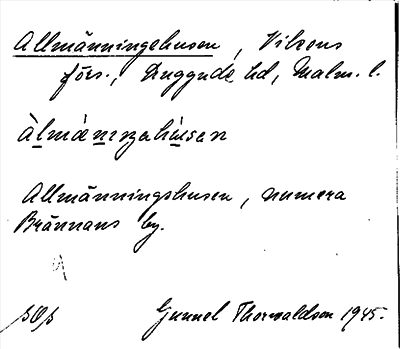 Allmänningehusen, Vilsens
förs., Onggnde hd, Malm. l.
àlmäniŋahu̇san
Allmänningshusen, numera
Brännans by.
Gunnel Thorvaldson 1945.